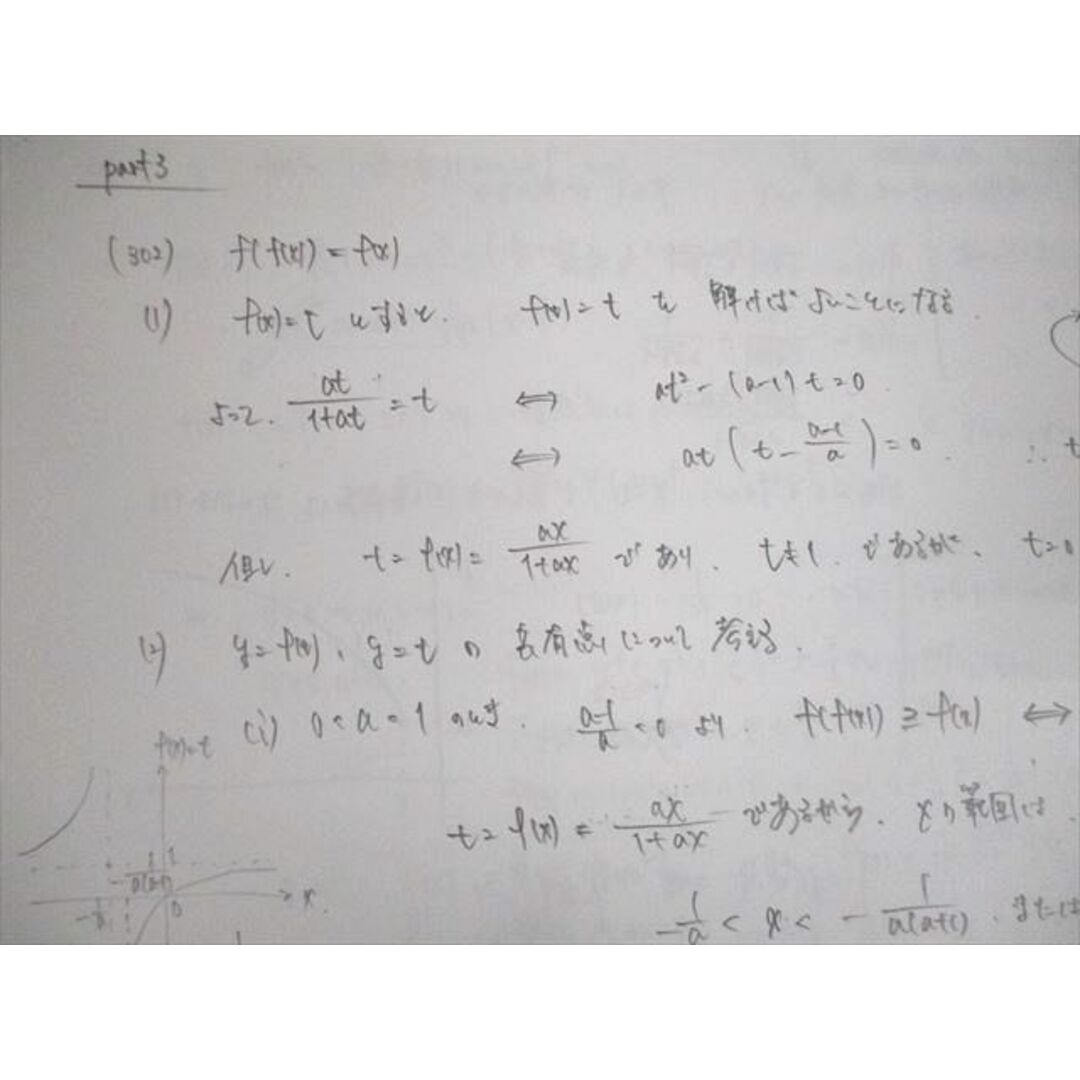 part3
(302) f(f(x)) = f(x)
(1) f(x)=t とすると. f(t)=t を 解けばよいことになる.
よって. at/(1+at) = t ⇔ at² - (a-1)t = 0.
⇔ at(t - (a-1)/a) = 0. ∴ t
但し. t = f(x) = ax/(1+ax) であり. t≠1. であるから、 t=0
(2) y=f(x)、y=t の 共有点について考える.
(i) 0<a<1 のとき. (a-1)/a < 0 より. f(f(x)) ≧ f(x) ⇔
f(x)=t
t = f(x) = ax/(1+ax) であるから. xの範囲は
1
0
x
-1/a < x < - 1/(a(a+1)). または